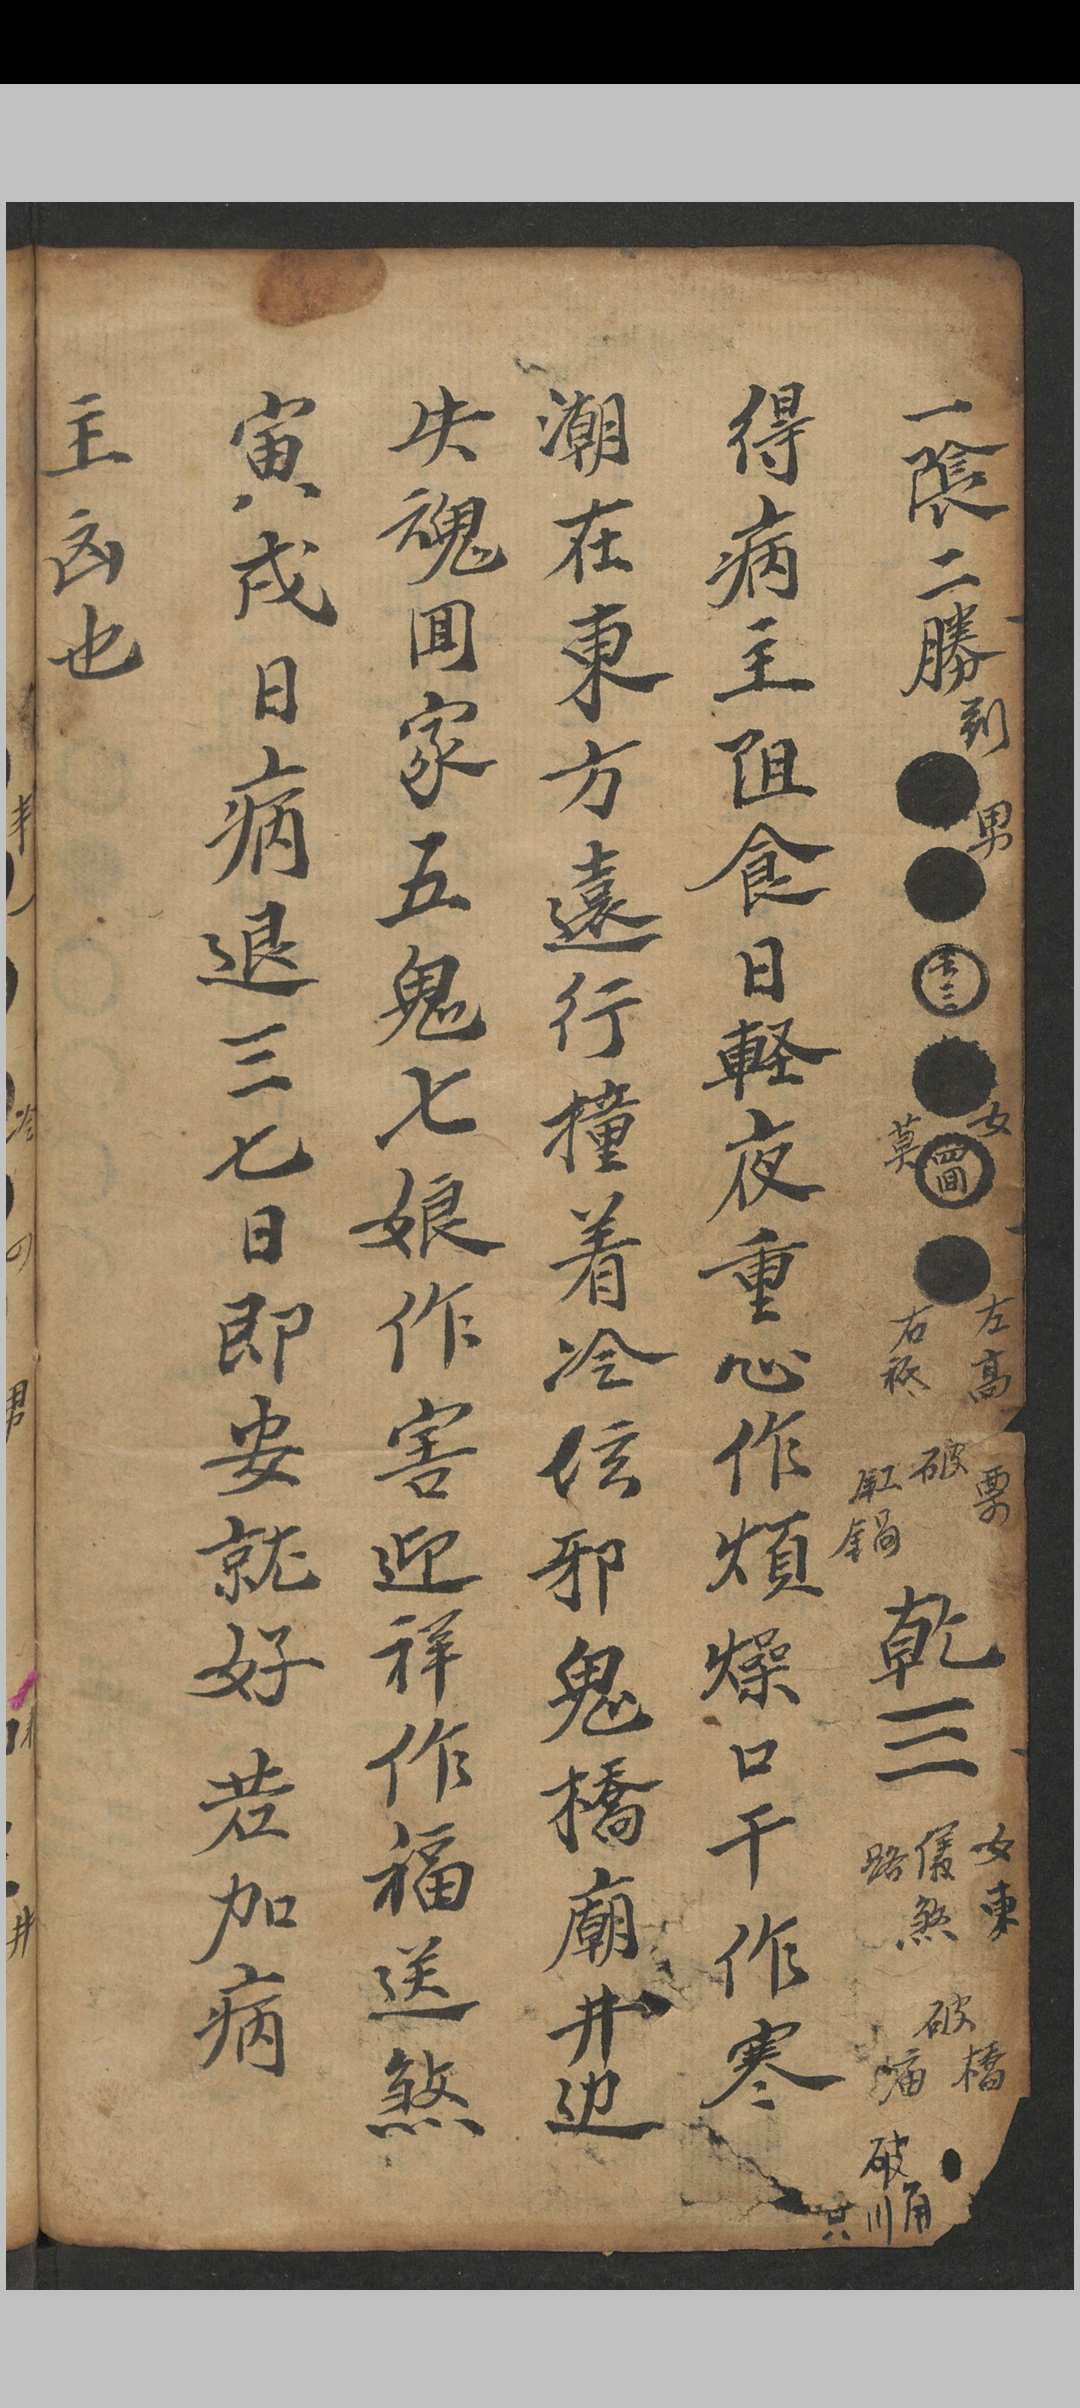 一陰二勝 到 男 女 莫 四囬 左高 右 破 缸鍋 乾三 女東 煞 路 破橋 破
得病主阻食日軽夜重心作煩燥口干作寒
潮在東方遠行撞着冷伭邪鬼橋廟井边
失魂囬家五鬼七娘作害迎祥作福送煞
寅戌日病退三七日即安就好若加病
主凶也